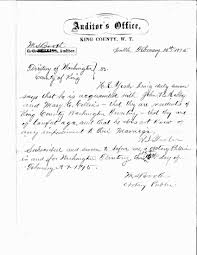 Auditor's Office,
KING COUNTY, W. T.
M S Booth Auditor.
Seattle, February 1875
Territory of Washington } ss.
County of King
H L Yesler being duly sworn
says that he is acquainted with John
and Mary that they are residents of
King County Washington Territory that they are
of lawful age and that he does not know of
any impediment to their marriage
Subscribed and sworn to before me a Notary Public
in and for Washington Territory this day of
February 1875.
M S Booth
Notary Public